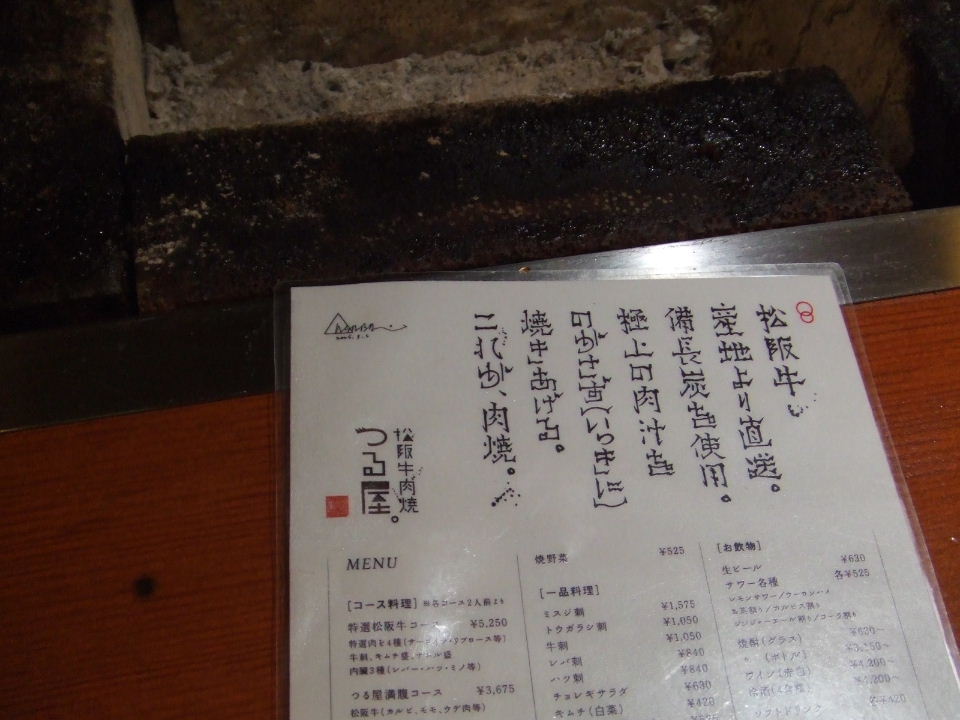 松阪牛
産地より直送。
備長炭を使用。
極上の肉汁を
のがさず(いっきに)
焼きあげる。
これが、肉焼。
松阪牛肉焼
つる屋。
MENU
[コース料理] ※各コース2人前より
特選松阪牛コース ¥5,250
特選肉を4種(サーロイン・リブロース等)
牛刺、キムチ盛、ナムル盛
内臓3種(レバー・ハツ・ミノ等)
つる屋満腹コース ¥3,675
松阪牛(カルビ、モモ、ウデ肉等)
焼野菜 ¥525
[一品料理]
ミスジ刺 ¥1,575
トウガラシ刺 ¥1,050
牛刺 ¥1,050
レバ刺 ¥840
ハツ刺 ¥840
チョレギサラダ ¥630
キムチ(白菜) ¥420
¥525
[お飲物]
生ビール ¥630
サワー各種 各¥525
レモンサワー/ウーロンハイ
お茶割り/カルピス割り
ジンジャーエール割り/コーラ割り
焼酎(グラス) ¥630~
〃 (ボトル) ¥3,150~
ワイン(赤・白) ¥4,200~
冷酒(4合瓶) ¥4,200~
ソフトドリンク 各¥420